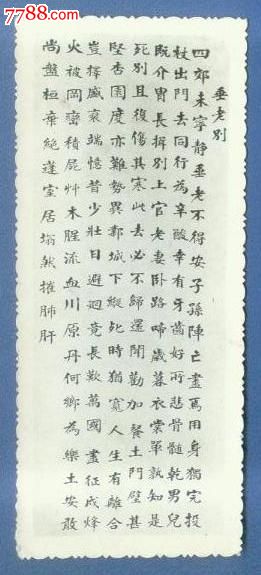 7788.com
垂老別
四郊未寧靜垂老不得安子孫陣亡盡焉用身獨完投
杖出門去同行為辛酸幸有牙齒好所悲骨髓乾男兒
既介冑長揖別上官老妻臥路啼歲暮衣裳單孰知是
死別且復傷其寒此去必不歸還聞勸加餐土門壁甚
堅杏園度亦難勢異鄴城下縱死時猶寬人生有離合
豈擇盛衰端憶昔少壯日遲迴竟長歎萬國盡征戍烽
火被岡巒積屍艸木腥流血川原丹何鄉為樂土安敢
尚盤桓棄絕蓬室居塌然摧肺肝